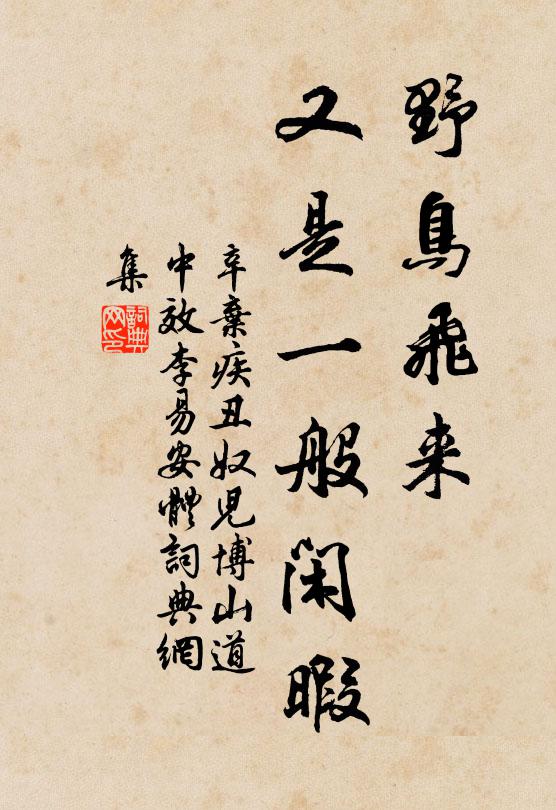 野鳥飛来
又是一般閑暇
辛棄疾丑奴兒博山道
中效李易安體詞典網
集
詞典
网印